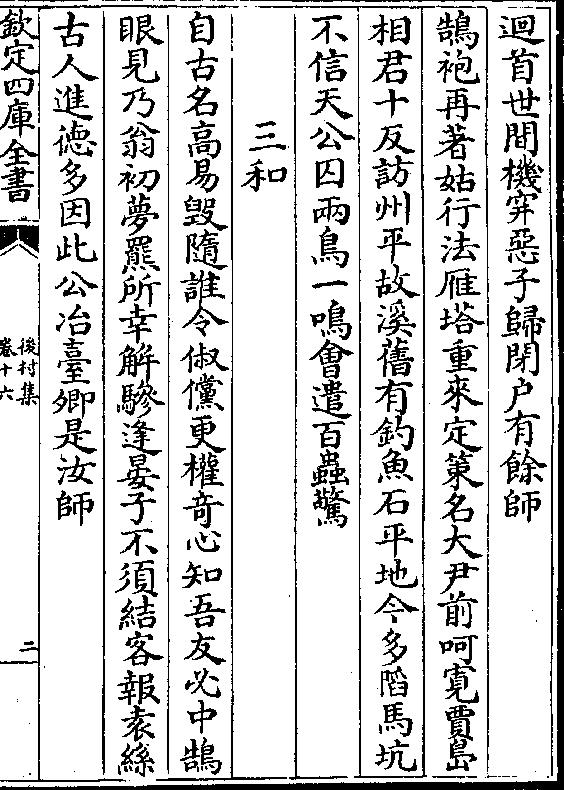 迴首世間機穽惡子歸閉户有餘師
鵠袍再著姑行法雁塔重來定第名大尹前呵寛賈島
相君十反訪州平故溪舊有釣魚石平地今多陷馬坑
不信天公囚兩鳥一鳴會遣百蟲驚
三和
自古名髙易毁隨誰令俶儻更權竒心知吾友必中鵠
眼見乃翁初夢羆所幸解驂逢晏子不須結客報袁絲
古人進徳多因此公冶臺卿是汝師
欽定四庫全書
後村集
卷十六
二